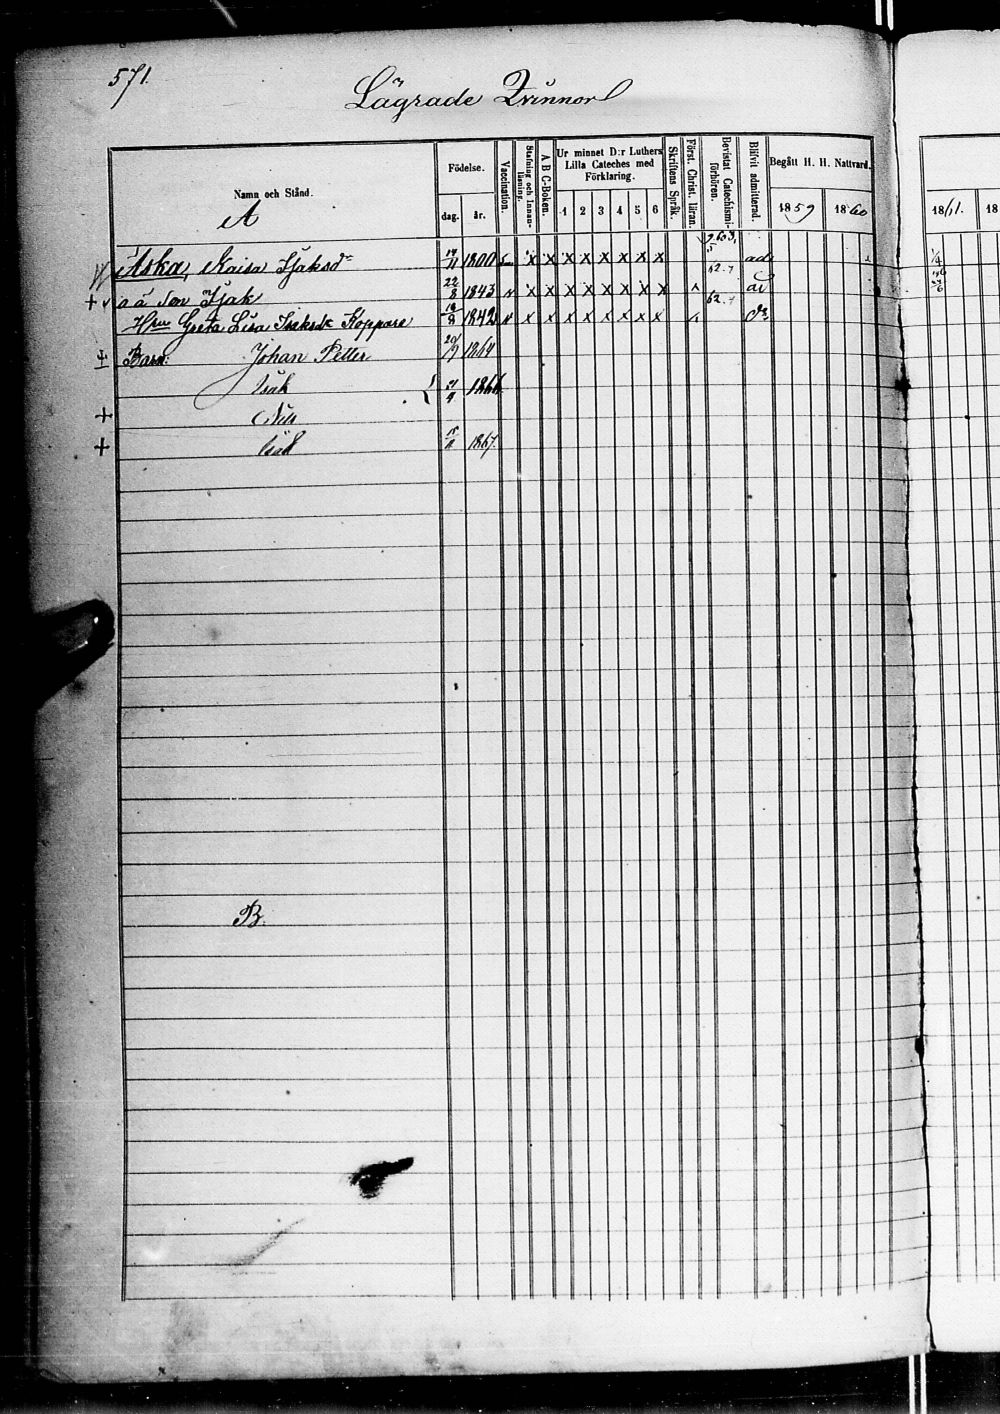 571.
Lägrade Qvinnor
Namn och Stånd.
A
Födelse.
dag. år.
Vaccination.
Stafning och Innanläsning.
A B C-Boken.
Ur minnet D:r Luthers Lilla Cateches med Förklaring.
1 2 3 4 5 6
Skriftens Språk.
Först. Christ. läran.
Bevistat Catechismiförhören.
Blifvit admitterad.
Begått H. H. Nattvard.
1859 1860
1861. 18
Aska, Kaisa Isaksdr 1800 x x x x x x x x ad
+ aä Son Isak 22/8 1843 x x x x x x x x 62. ad
Hru Greta Lisa Isaksdr Koppare 1842 x x x x x x x x 62.
+ Barn: Johan Petter 20/9 1864
Isak 1866
+ Nils
+ Isak 1867.
B.